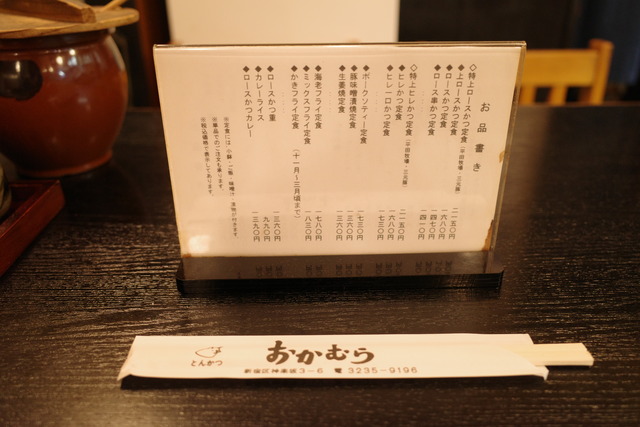 お品書き
◇特上ロースかつ定食(平田牧場・三元豚) 二一五〇円
◆上ロースかつ定食 一六八〇円
◆ロースかつ定食 一四七〇円
◆ロース串かつ定食 一四一〇円
◇特上ヒレかつ定食(平田牧場・三元豚) 二一五〇円
◆ヒレかつ定食 一六八〇円
◆ヒレ一口かつ定食 一七三〇円
◆ポークソティー定食 一七三〇円
◆豚味噌漬焼定食 一三六〇円
◆生姜焼定食 一三六〇円
◆海老フライ定食 一七八〇円
◆ミックスフライ定食 一八三〇円
◆かきフライ定食(十一月〜三月頃まで)
◆ロースかつ重 一三六〇円
◆カレーライス 九九〇円
◆ロースかつカレー 一三九〇円
※定食には小鉢・ご飯・味噌汁・漬物が付きます
※単品でのご注文も承ります。
※税込価格で表示してあります。
とんかつ
おかむら
新宿区神楽坂3-6 ☎3235-9196